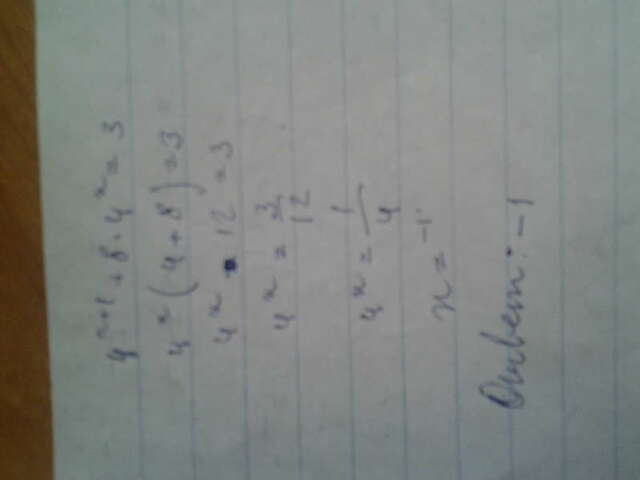 4^{x+1} + 8 · 4^x = 3
4^x (4 + 8) = 3
4^x · 12 = 3
4^x = 3/12
4^x = 1/4
x = -1
Ответ: -1